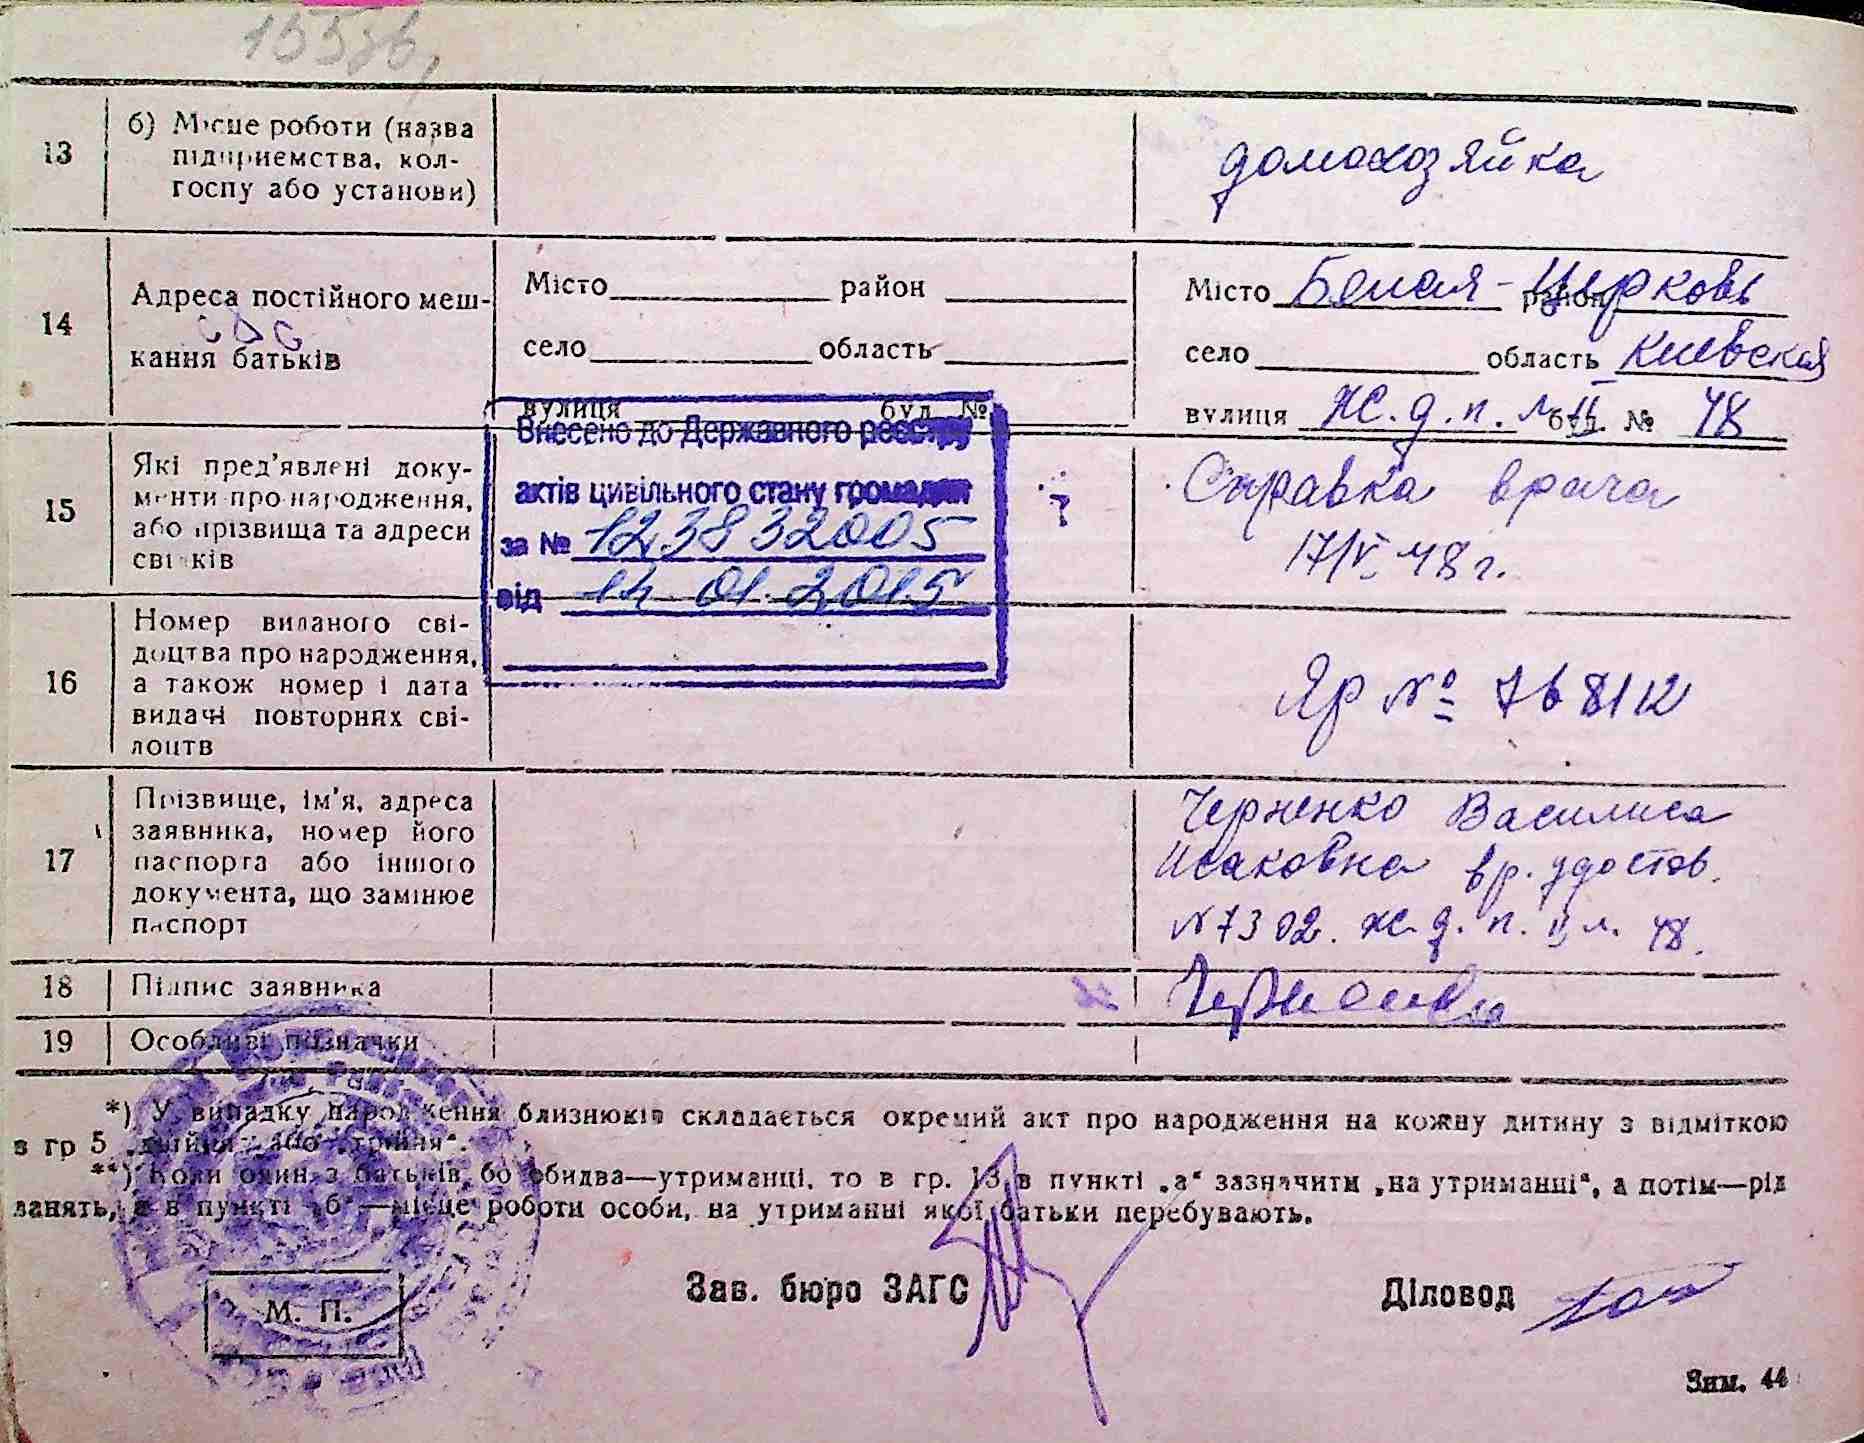 155зв,
13 б) Місце роботи (назва
підприємства, кол-
госпу або установи)
домохозяйка
14 Адреса постійного меш-
кання батьків
Місто район
село область
вулиця буд. №
Місто Белая-Церковь район
село область Киевская
вулиця Ж.д.п. буд. № 48
Внесено до Державного реєстру
актів цивільного стану громадян
за № 1238 32005
від 14.01.2015
15 Які пред’явлені доку-
менти про народження,
або прізвища та адреси
свідків
Справка врача
17/V-48 г.
16 Номер виданого сві-
доцтва про народження,
а також номер і дата
видачі повторних сві-
доцтв
Яр № 768112
17 Прізвище, ім’я, адреса
заявника, номер його
паспорта або іншого
документа, що замінює
паспорт
Черненко Василиса
Исаковна вр. удостов.
№7302. ж.д.п. II л. 48.
18 Підпис заявника
19 Особливі позначки
*) У випадку народження близнюків складається окремий акт про народження на кожну дитину з відміткою
в гр 5 „двійня“ або „трійня“.
**) Коли один з батьків, бо обидва—утриманці, то в гр. 13 в пункті „а“ зазначити „на утриманні“, а потім—рід
занять, а в пункті „б“—місце роботи особи, на утриманні якої батьки перебувають.
Зав. бюро ЗАГС
Діловод
М. П.
Зим. 44